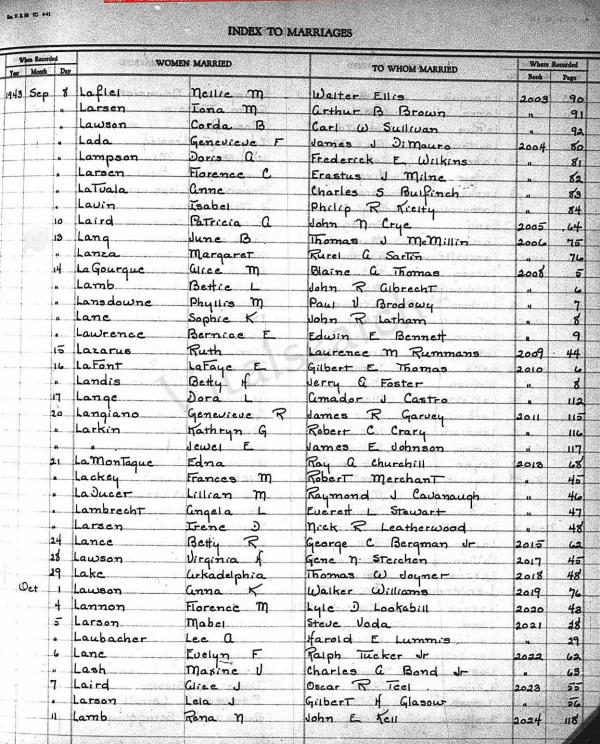 INDEX TO MARRIAGES
When Recorded WOMEN MARRIED TO WHOM MARRIED Where Recorded
Year Month Day Book Page
1943 Sep 8 Laflel Nellie M Walter Ellis 2003 90
" Larsen Iona M Arthur B Brown " 91
" Lawson Corda B Carl W Sullivan " 92
" Lada Genevieve F James J DiMauro 2004 80
" Lampson Doris A Frederick E Wilkins " 81
" Larsen Florence C Erastus J Milne " 82
" LaTuala Anne Charles S Bulfinch " 83
" Lavin Isabel Philip R Kielty " 84
10 Laird Patricia A John N Crye 2005 64
13 Lang June B Thomas J McMillin 2006 75
" Lanza Margaret Rurel A Sartin " 76
14 LaGourgue Alice M Blaine A Thomas 2008 5
" Lamb Bettie L John R Albrecht " 6
" Lansdowne Phyllis M Paul V Brodowy " 7
" Lane Sophie K John R Latham " 8
" Lawrence Berniae E Edwin E Bennett " 9
15 Lazarus Ruth Laurence M Rummans 2009 44
16 LaFont LaFaye E Gilbert E Thomas 2010 6
" Landis Betty H Jerry A Foster " 8
17 Lange Dora L Amador J Castro " 112
20 Langiano Genevieve R James R Garvey 2011 115
" Larkin Kathryn G Robert C Crary " 116
" " Jewel E James E Johnson " 117
21 LaMontague Edna Ray A Churchill 2013 68
" Lackey Frances M Robert Merchant " 45
" LaDucer Lillian M Raymond J Cavanaugh " 46
" Lambrecht Angela L Everett L Stewart " 47
" Larsen Irene D Nick R Leatherwood " 48
24 Lance Betty R George C Bergman Jr 2015 62
28 Lawson Virginia H Gene N Sterchen 2017 45
29 Lake Arkadelphia Thomas W Joyner 2018 48
Oct 1 Lawson Anna K Walker Williams 2019 76
4 Lannon Florence M Lyle D Lookabill 2020 43
5 Larson Mabel Steve Voda 2021 28
" Laubacher Lee A Harold E Lummis " 29
6 Lane Evelyn F Ralph Tucker Jr 2022 62
" Lash Maxine V Charles A Bond Jr " 63
7 Laird Alice J Oscar R Teel 2023 55
" Larson Lela J Gilbert H Glasow " 56
11 Lamb Rona N John E Kell 2024 118